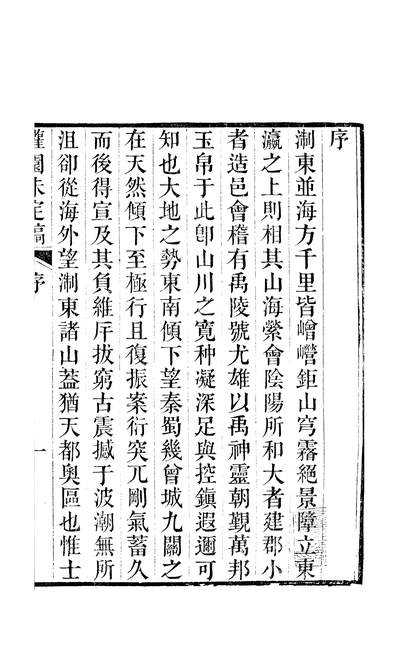 序
淛東並海方千里皆嶒㠥鉅山穹霿絕景障立東
瀛之上則相其山海縈會陰陽所和大者建郡小
者造邑會稽有禹陵號尤雄以禹神靈朝覲萬邦
玉帛于此卽山川之寬种凝深足與控鎭遐邇可
知也大地之勢東南傾下望秦蜀幾曾城九關之
在天然傾下至極行且復振案衍突兀剛氣蓄久
而後得宣及其負維厈拔窮古震撼于波潮無所
沮卻從海外望淛東諸山葢猶天都奧區也惟士
灌園未定稿 序 一